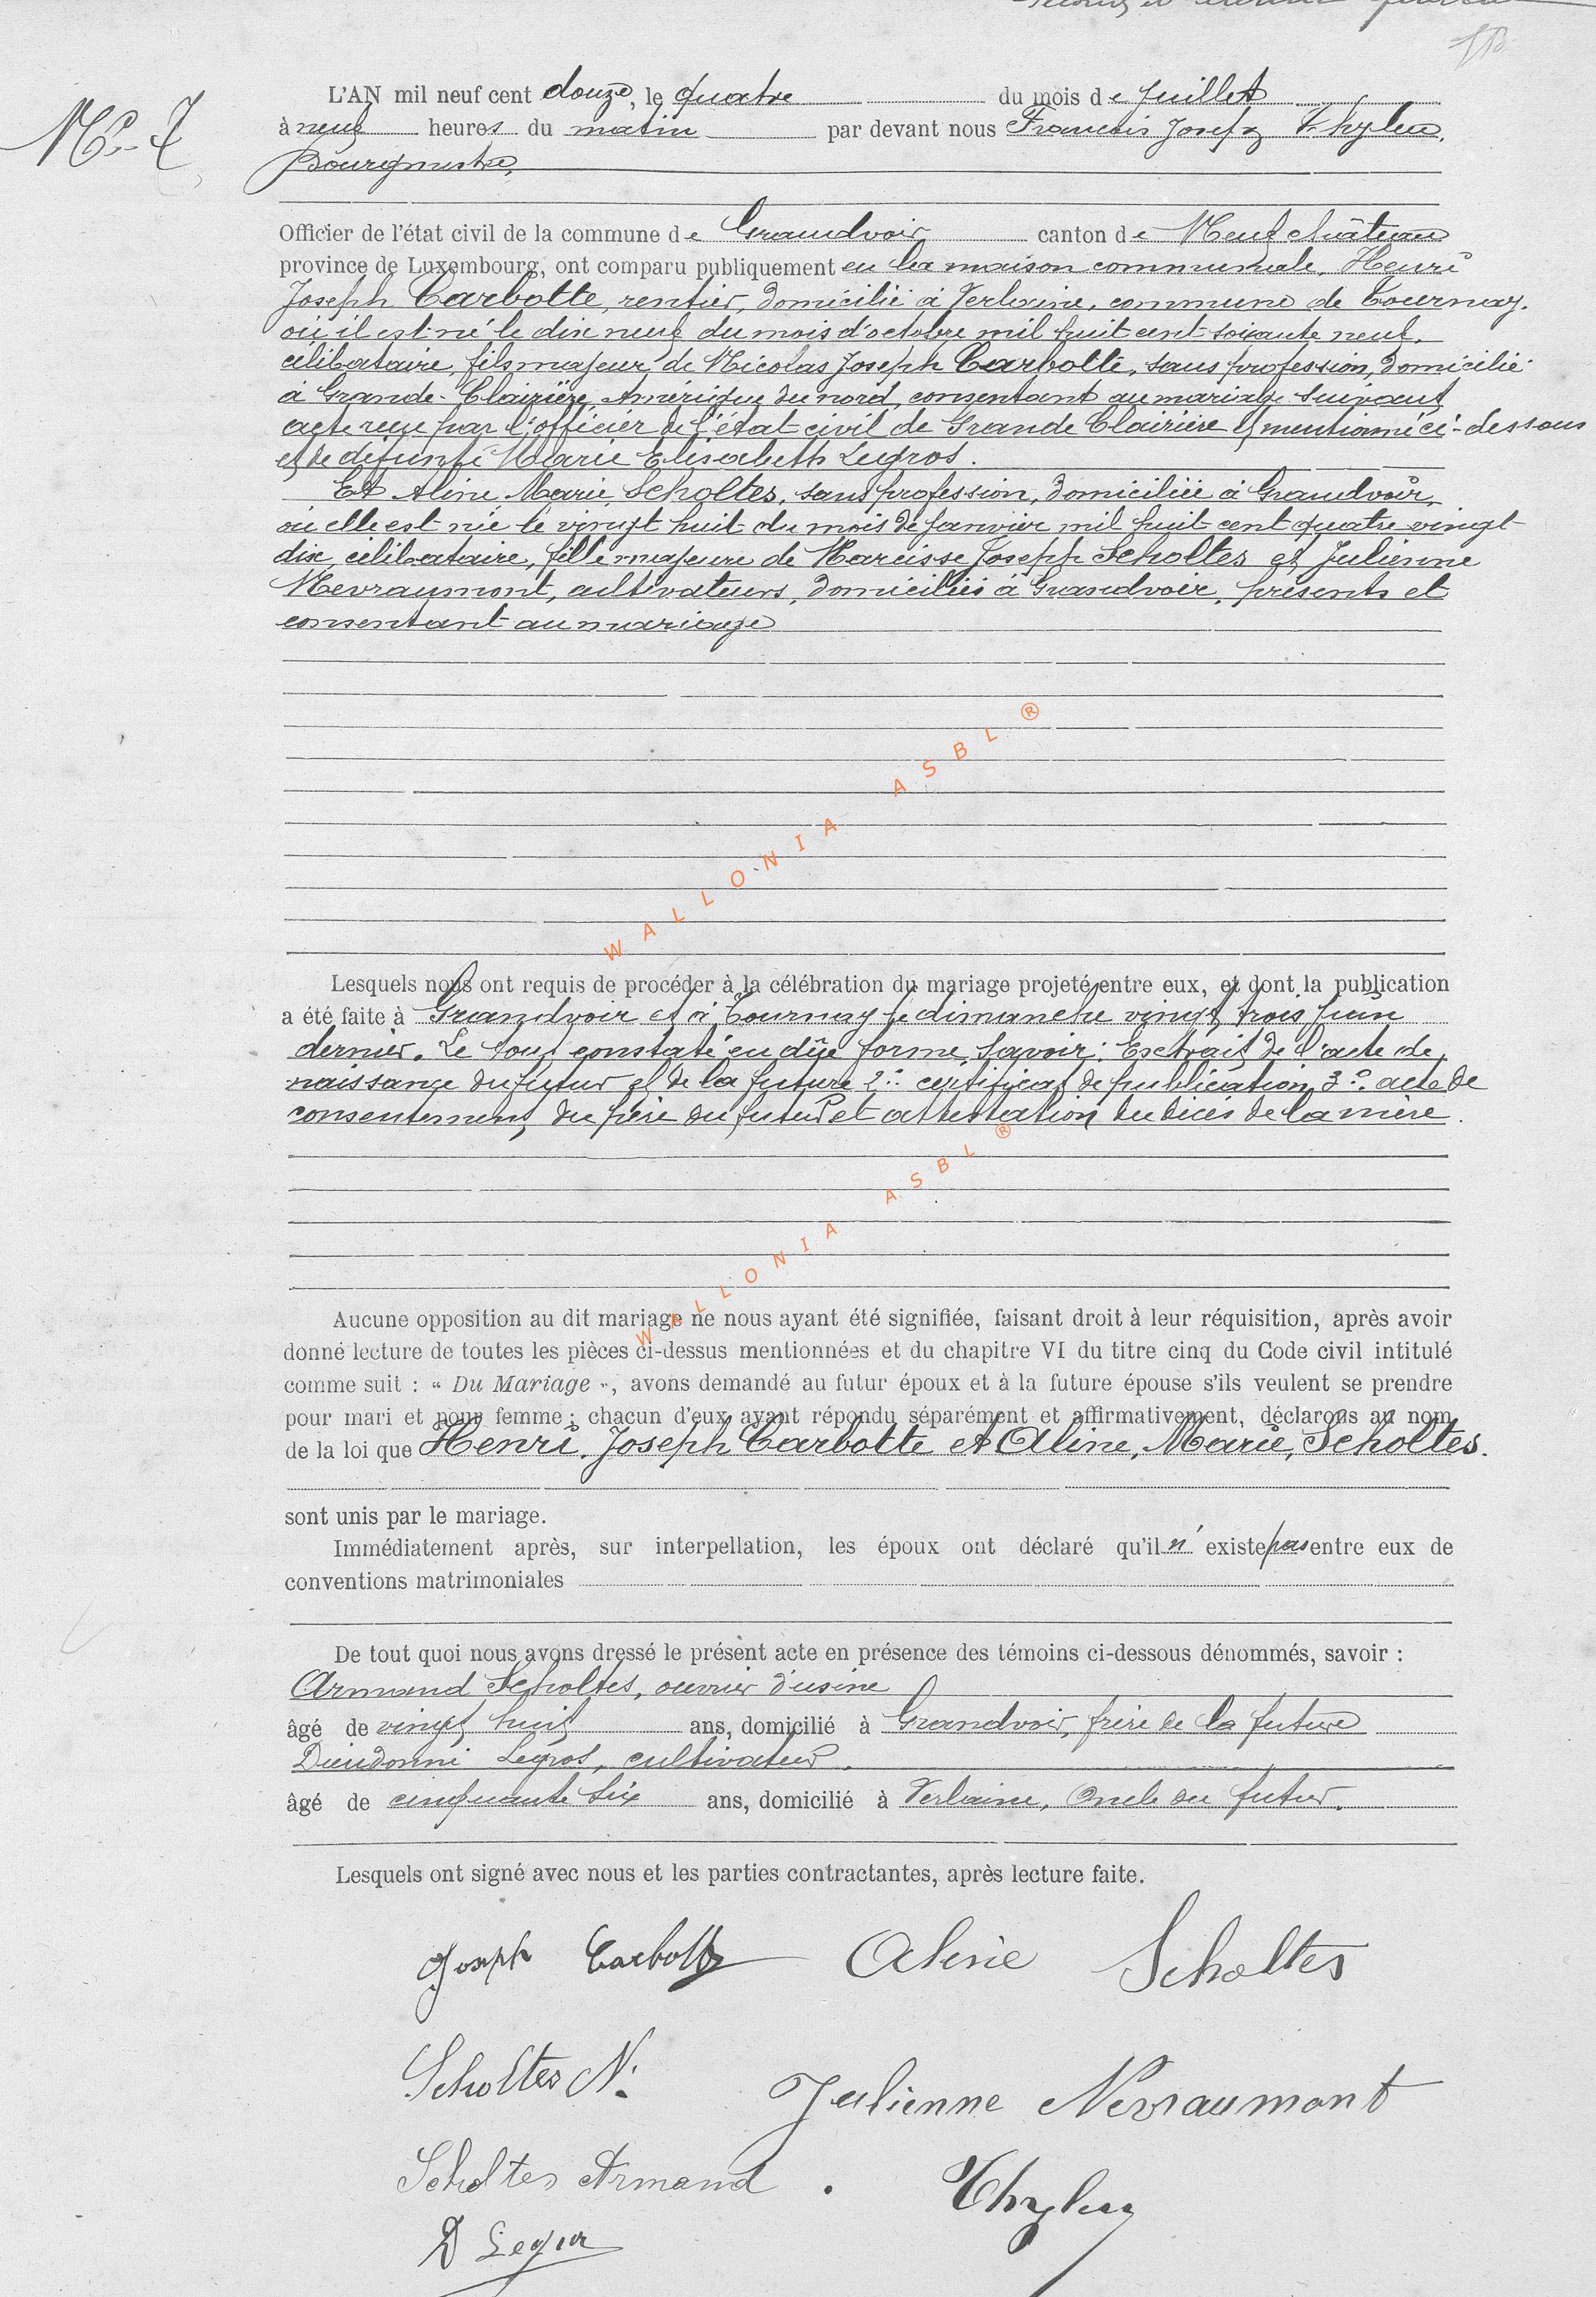 N° 7
L'AN mil neuf cent douze, le quatre du mois de Juillet
à neuf heures du matin par devant nous François Joseph Thyleu,
Bourgmestre,
Officier de l'état civil de la commune de Grandvoir canton de Neufchâteau
province de Luxembourg, ont comparu publiquement en la maison communale, Henri
Joseph Carbotte, rentier, domicilié à Verlaine, commune de Tournay,
où il est né le dix neuf du mois d'octobre mil huit cent soixante neuf,
célibataire, fils majeur de Nicolas Joseph Carbotte, sans profession, domicilié
à Grande-Clairière, Amérique du nord, consentant au mariage suivant
acte reçu par l'officier de l'état civil de Grande Clairière et mentionné ci-dessous
et de défunte Marie Elisabeth Legros.
Et Aline Marie Scholtes, sans profession, domiciliée à Grandvoir,
où elle est née le vingt huit du mois de Janvier mil huit cent quatre vingt
dix, célibataire, fille majeure de Narcisse Joseph Scholtes et Julienne
Nevraumont, cultivateurs, domiciliés à Grandvoir, présents et
consentant au mariage
WALLONIA ASBL ®
Lesquels nous ont requis de procéder à la célébration du mariage projeté entre eux, et dont la publication
a été faite à Grandvoir et à Tournay le dimanche vingt trois Juin
dernier. Le tout constaté en dûe forme, savoir: Extrait de l'acte de
naissance du futur et de la future 2° certificat de publication, 3° acte de
consentement du père du futur et attestation du décès de la mère.
WALLONIA ASBL ®
Aucune opposition au dit mariage ne nous ayant été signifiée, faisant droit à leur réquisition, après avoir
donné lecture de toutes les pièces ci-dessus mentionnées et du chapitre VI du titre cinq du Code civil intitulé
comme suit : « Du Mariage », avons demandé au futur époux et à la future épouse s'ils veulent se prendre
pour mari et pour femme ; chacun d'eux ayant répondu séparément et affirmativement, déclarons au nom
de la loi que Henri, Joseph Carbotte et Aline, Marie, Scholtes.
sont unis par le mariage.
Immédiatement après, sur interpellation, les époux ont déclaré qu'il n' existe pas entre eux de
conventions matrimoniales
De tout quoi nous avons dressé le présent acte en présence des témoins ci-dessous dénommés, savoir :
Armand Scholtes, ouvrier d'usine
âgé de vingt huit ans, domicilié à Grandvoir, frère de la future
Dieudonné Legros, cultivateur,
âgé de cinquante six ans, domicilié à Verlaine, Oncle du futur.
Lesquels ont signé avec nous et les parties contractantes, après lecture faite.
Joseph Carbotte Aline Scholtes
Scholtes N. Julienne Nevraumont
Scholtes Armand. Thyleu
D Legros